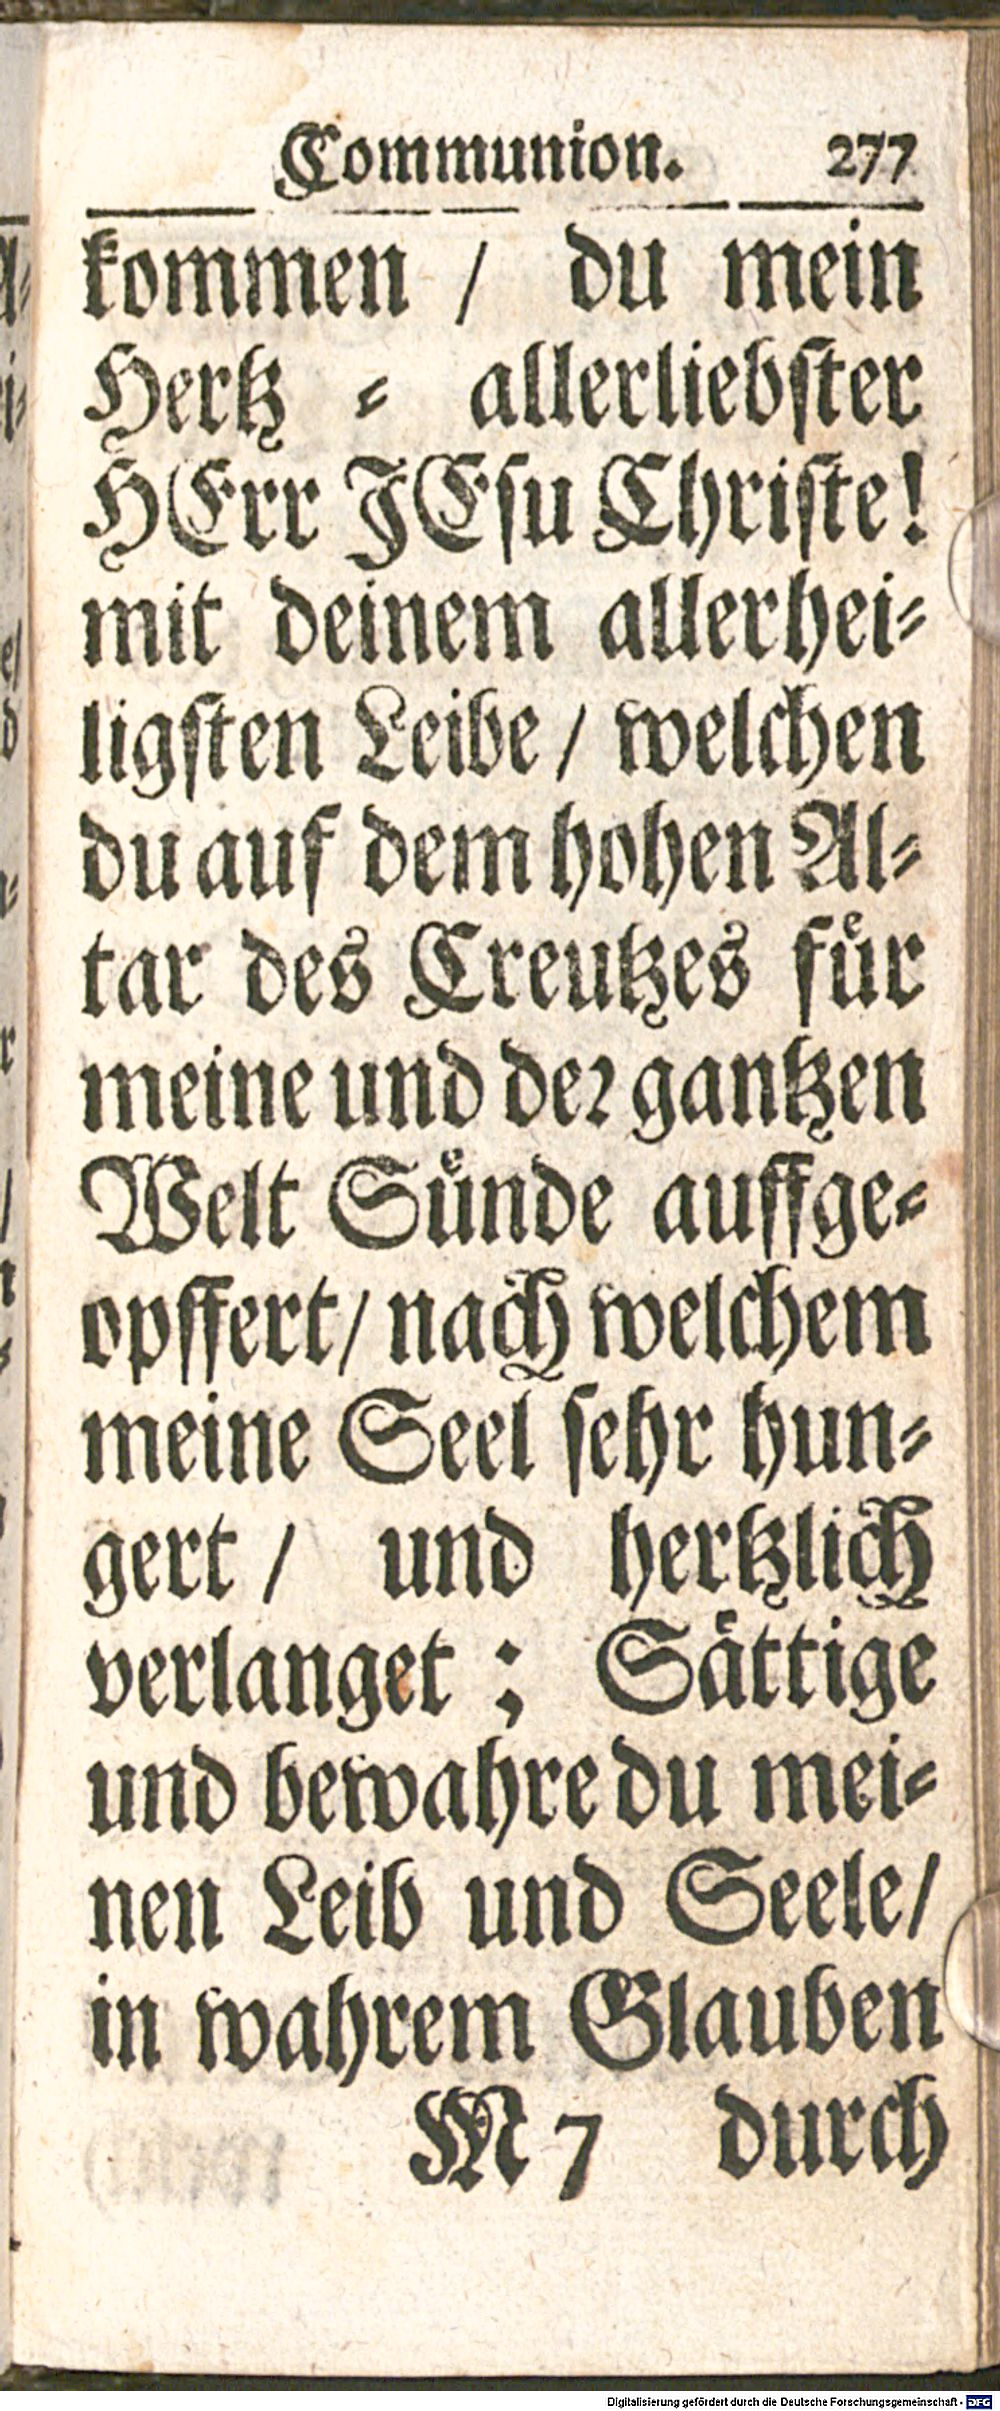 Communion. 277
kommen / du mein
Hertz - allerliebster
HErr JEsu Christe!
mit deinem allerhei-
ligsten Leibe / welchen
du auf dem hohen Al-
tar des Creutzes fuͤr
meine und der gantzen
Welt Suͤnde auffge-
opffert / nach welchem
meine Seel sehr hun-
gert / und hertzlich
verlanget ; Sättige
und bewahre du mei-
nen Leib und Seele /
in wahrem Glauben
M 7 durch
Digitalisierung gefördert durch die Deutsche Forschungsgemeinschaft - DFG